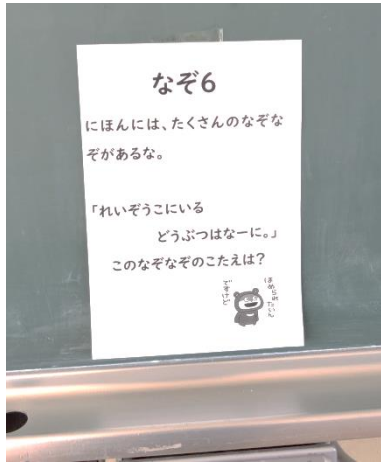 なぞ6
にほんには、たくさんのなぞな
ぞがあるな。
「れいぞうこにいる
どうぶつはなーに。」
このなぞなぞのこたえは?
ほめられたいん
ですけど